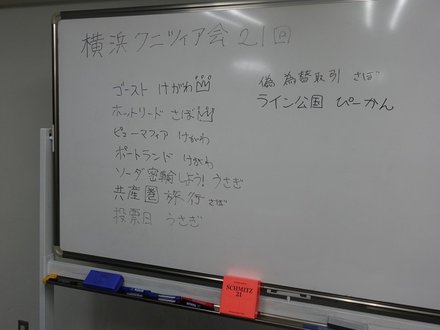 横浜クニツィア会21回
ゴースト けがわ
ホットリード さぼ
ピューマフィア けがわ
ポートランド けがわ
ソーダ密輸しよう! うさぎ
共産圏旅行 さぼ
投票日 うさぎ
偽 為替取引 さぼ
ライン公国 ぴーかん
SCHMITZ
21